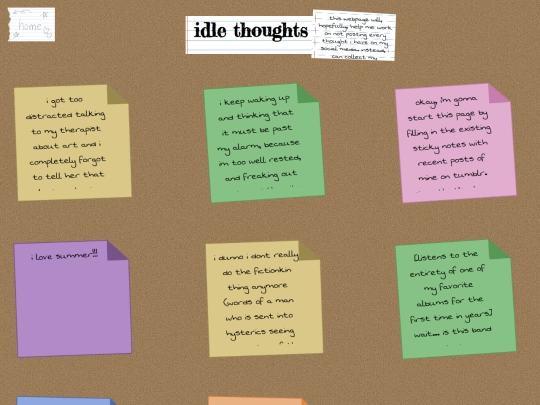 home
idle thoughts
this webpage will
hopefully help me work
on not posting every
thought i have on my
social media. instead, i
can collect my
i got too
distracted talking
to my therapist
about art and i
completely forgot
to tell her that
i keep waking up
and thinking that
it must be past
my alarm, because
im too well rested,
and freaking out
okay, i'm gonna
start this page by
filling in the existing
sticky notes with
recent posts of
mine on tumblr.
i love summer!!!
i dunno i dont really
do the fictionkin
thing anymore
(words of a man
who is sent into
hysterics seeing
[listens to the
entirety of one of
my favorite
albums for the
first time in years]
wait... is this band